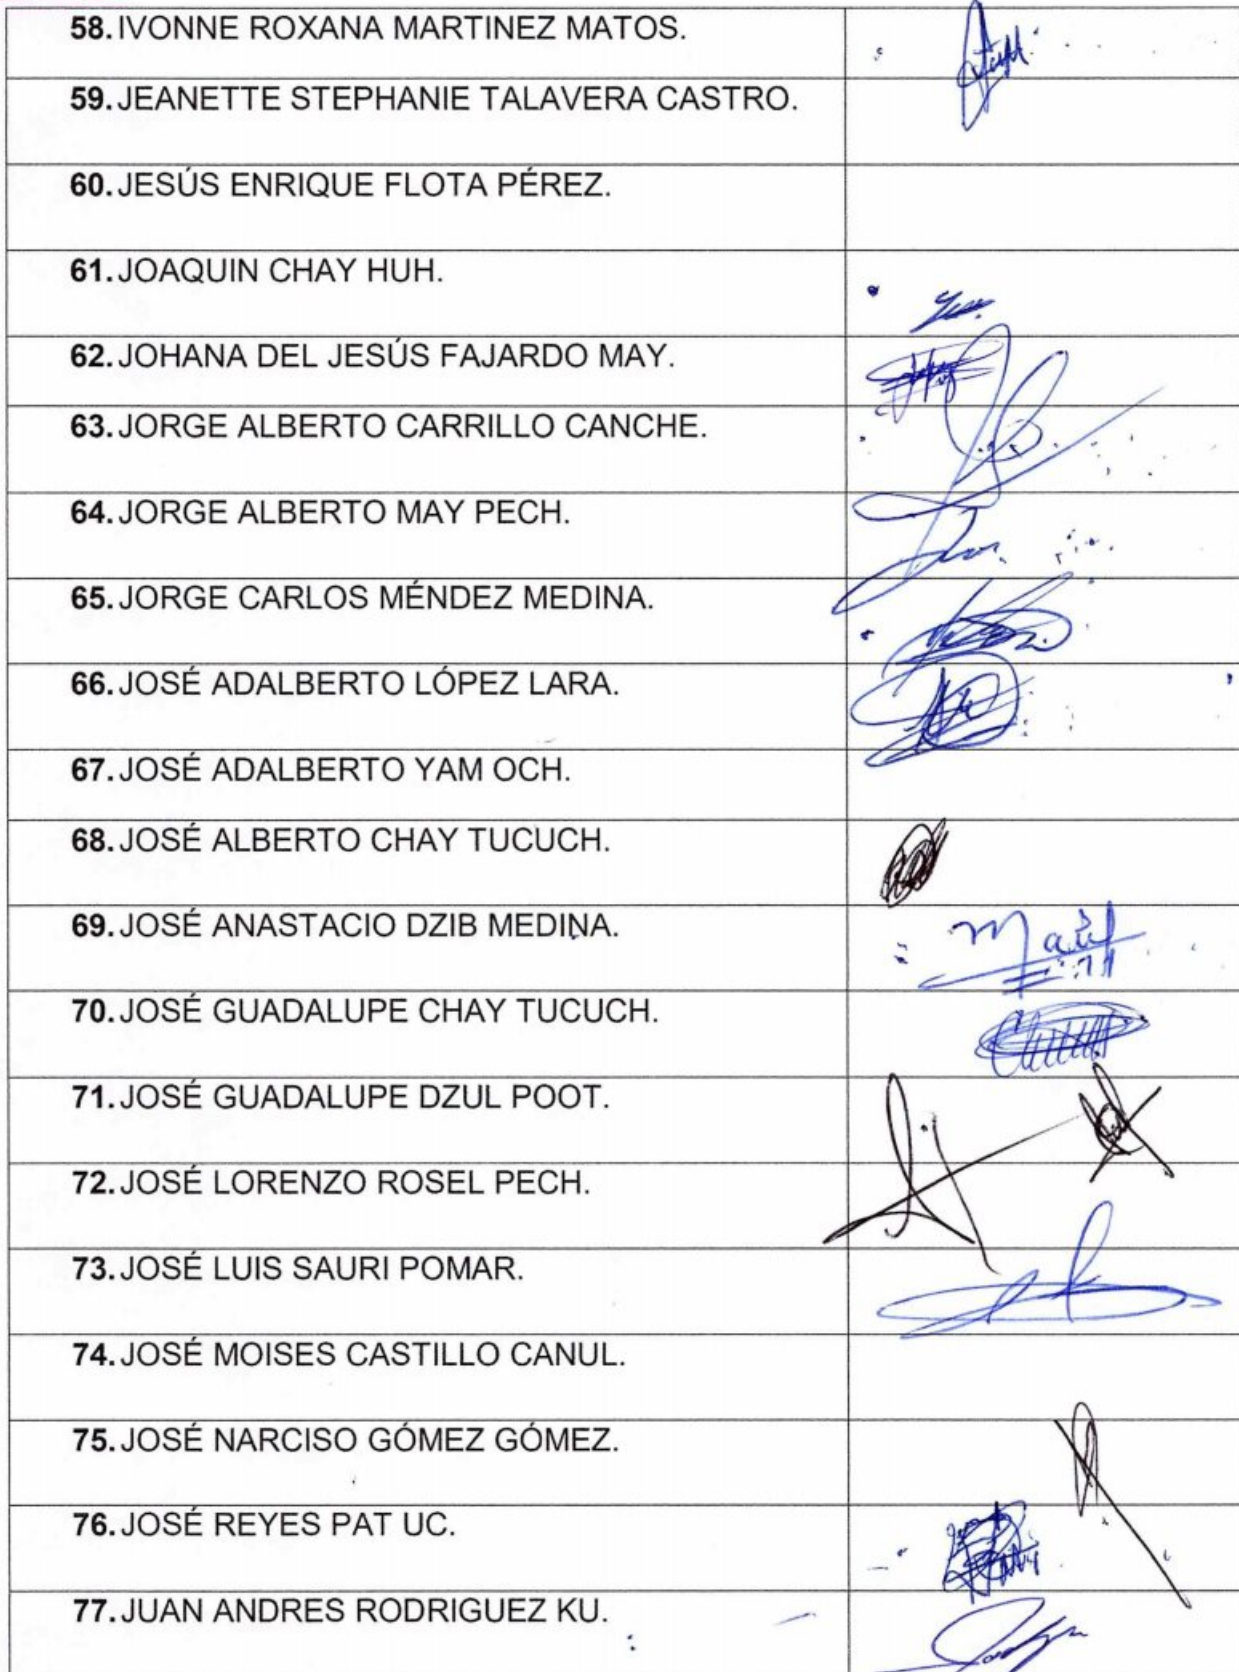 58. IVONNE ROXANA MARTINEZ MATOS.
59. JEANETTE STEPHANIE TALAVERA CASTRO.
60. JESÚS ENRIQUE FLOTA PÉREZ.
61. JOAQUIN CHAY HUH.
62. JOHANA DEL JESÚS FAJARDO MAY.
63. JORGE ALBERTO CARRILLO CANCHE.
64. JORGE ALBERTO MAY PECH.
65. JORGE CARLOS MÉNDEZ MEDINA.
66. JOSÉ ADALBERTO LÓPEZ LARA.
67. JOSÉ ADALBERTO YAM OCH.
68. JOSÉ ALBERTO CHAY TUCUCH.
69. JOSÉ ANASTACIO DZIB MEDINA.
70. JOSÉ GUADALUPE CHAY TUCUCH.
71. JOSÉ GUADALUPE DZUL POOT.
72. JOSÉ LORENZO ROSEL PECH.
73. JOSÉ LUIS SAURI POMAR.
74. JOSÉ MOISES CASTILLO CANUL.
75. JOSÉ NARCISO GÓMEZ GÓMEZ.
76. JOSÉ REYES PAT UC.
77. JUAN ANDRES RODRIGUEZ KU.